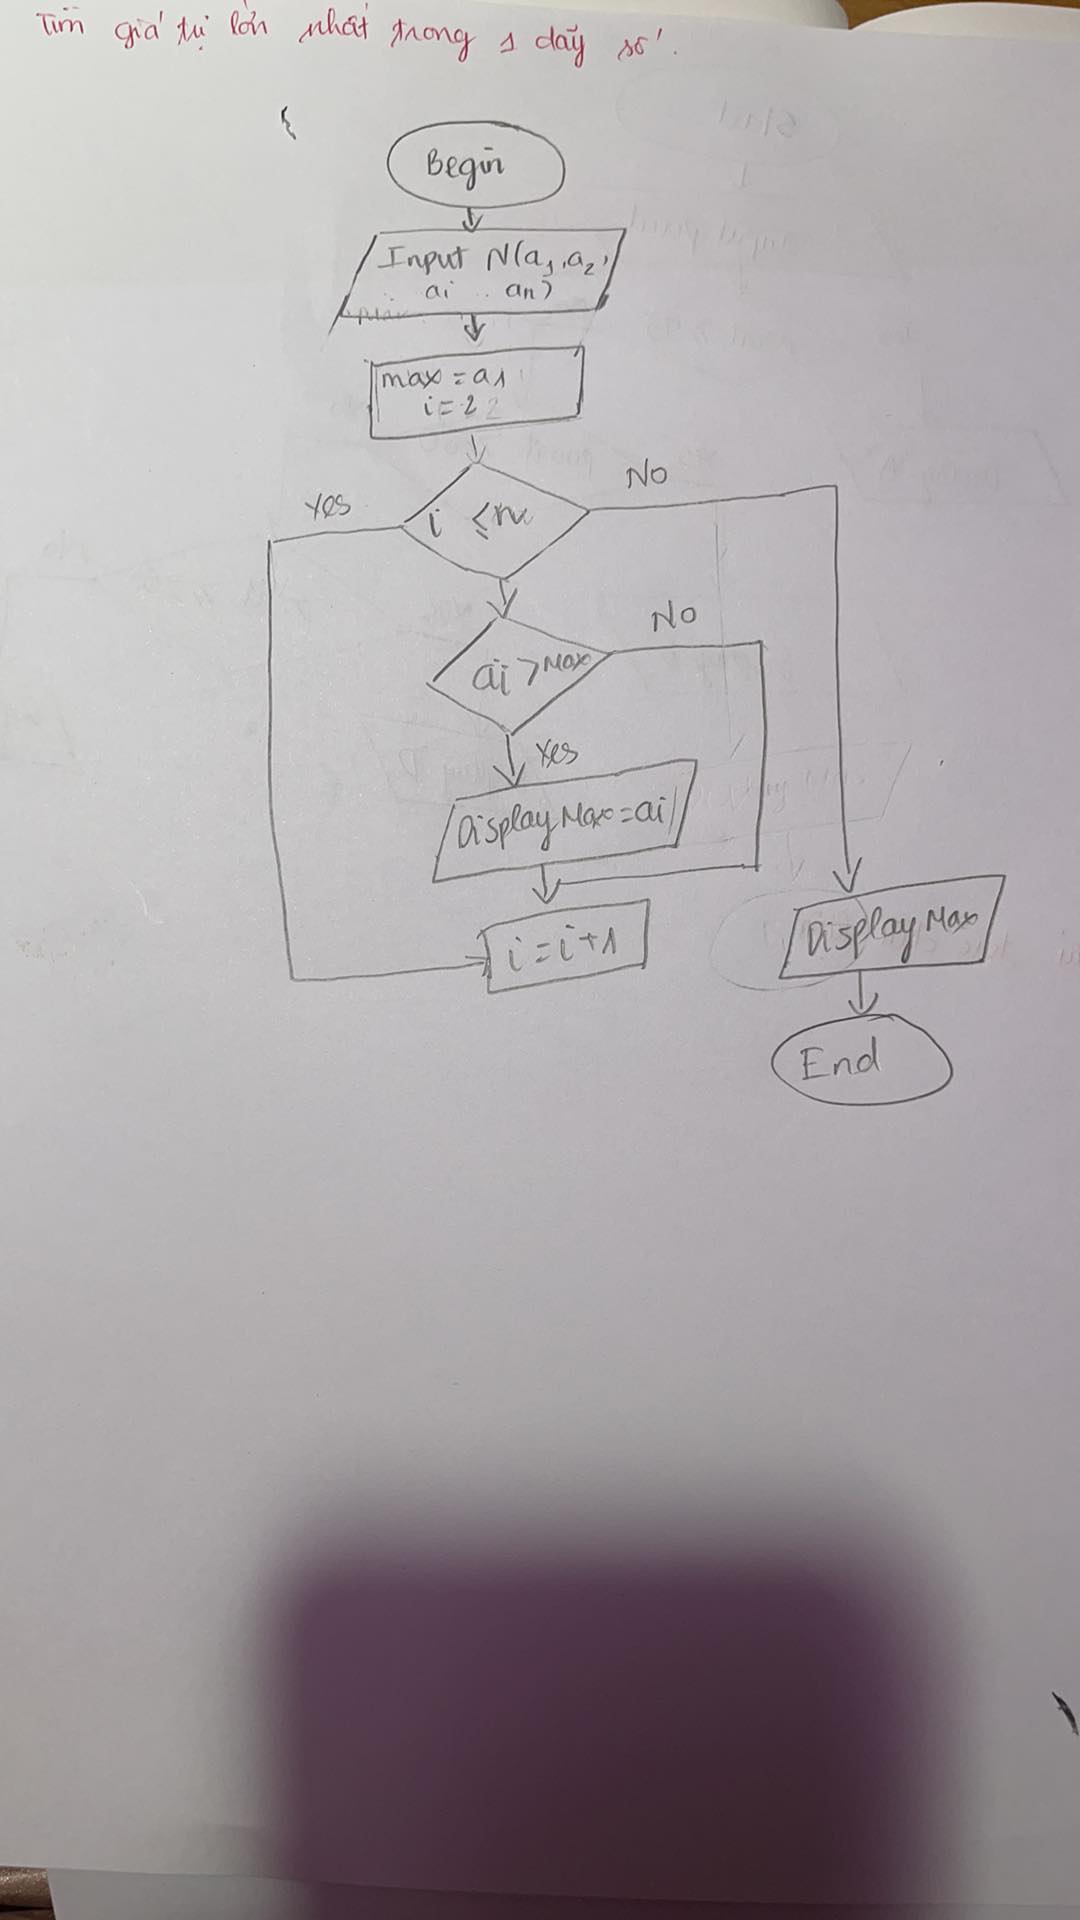 Tìm giá trị lớn nhất trong 1 dãy số.
Begin
Input N(a1, a2,
ai .. an)
max = a1
i = 2
i ≤ n
Yes
No
ai > Max
No
Yes
Display Max = ai
i = i + 1
Display Max
End